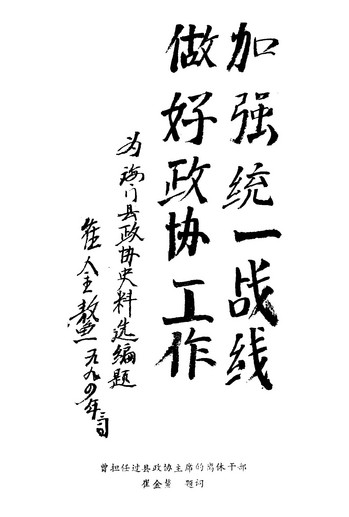 加强统一战线
做好政协工作
为海门县政协史料选编题
崔金鳌
曾担任过县政协主席的离休干部
崔金鳌 题词